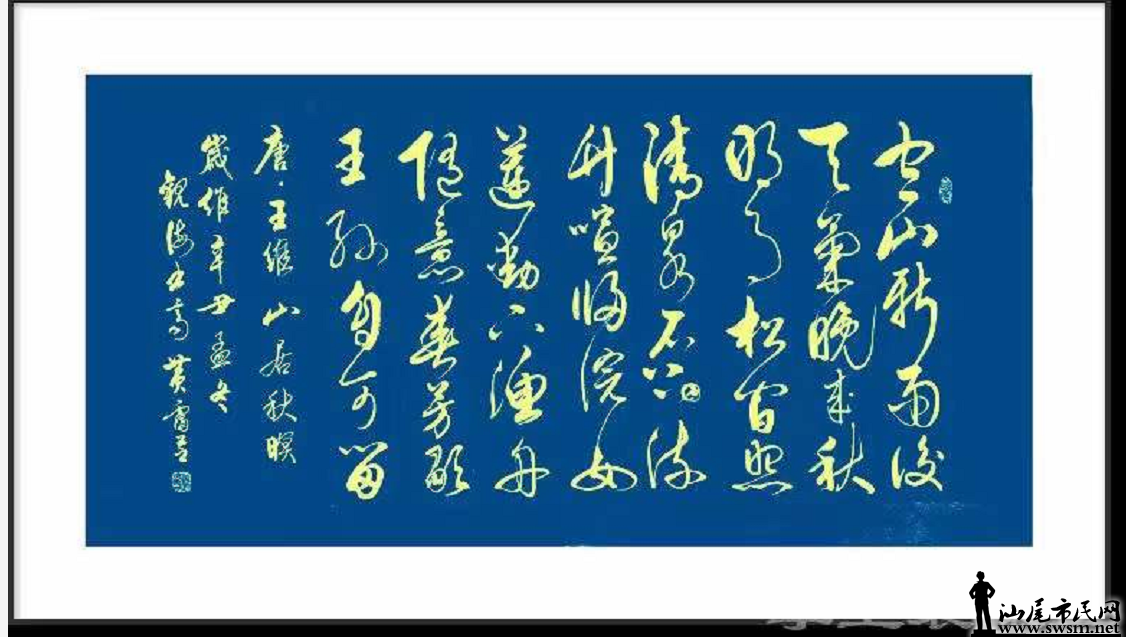 空山新雨後
天氣晚來秋
明月松間照
清泉石上流
竹喧歸浣女
蓮動下漁舟
隨意春芳歇
王孫自可留
唐·王維山居秋暝
歲維辛丑孟冬
觀海書
汕尾市民网
www.swsm.net